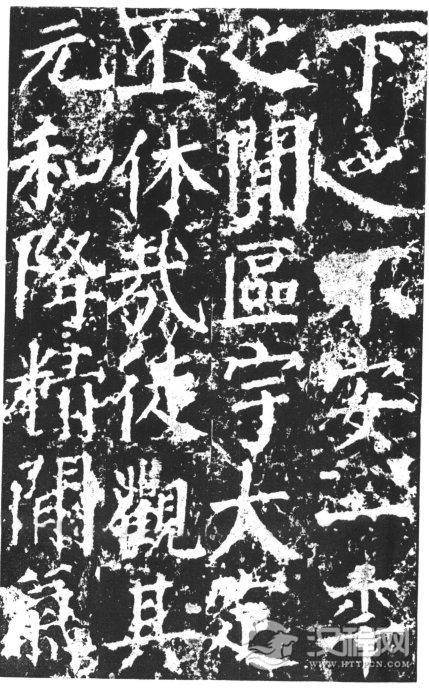 下之不安二
之閒區宇大定
丕休哉徒觀其
元和降精閒氣
汉程网
WWW.HTTPCN.COM